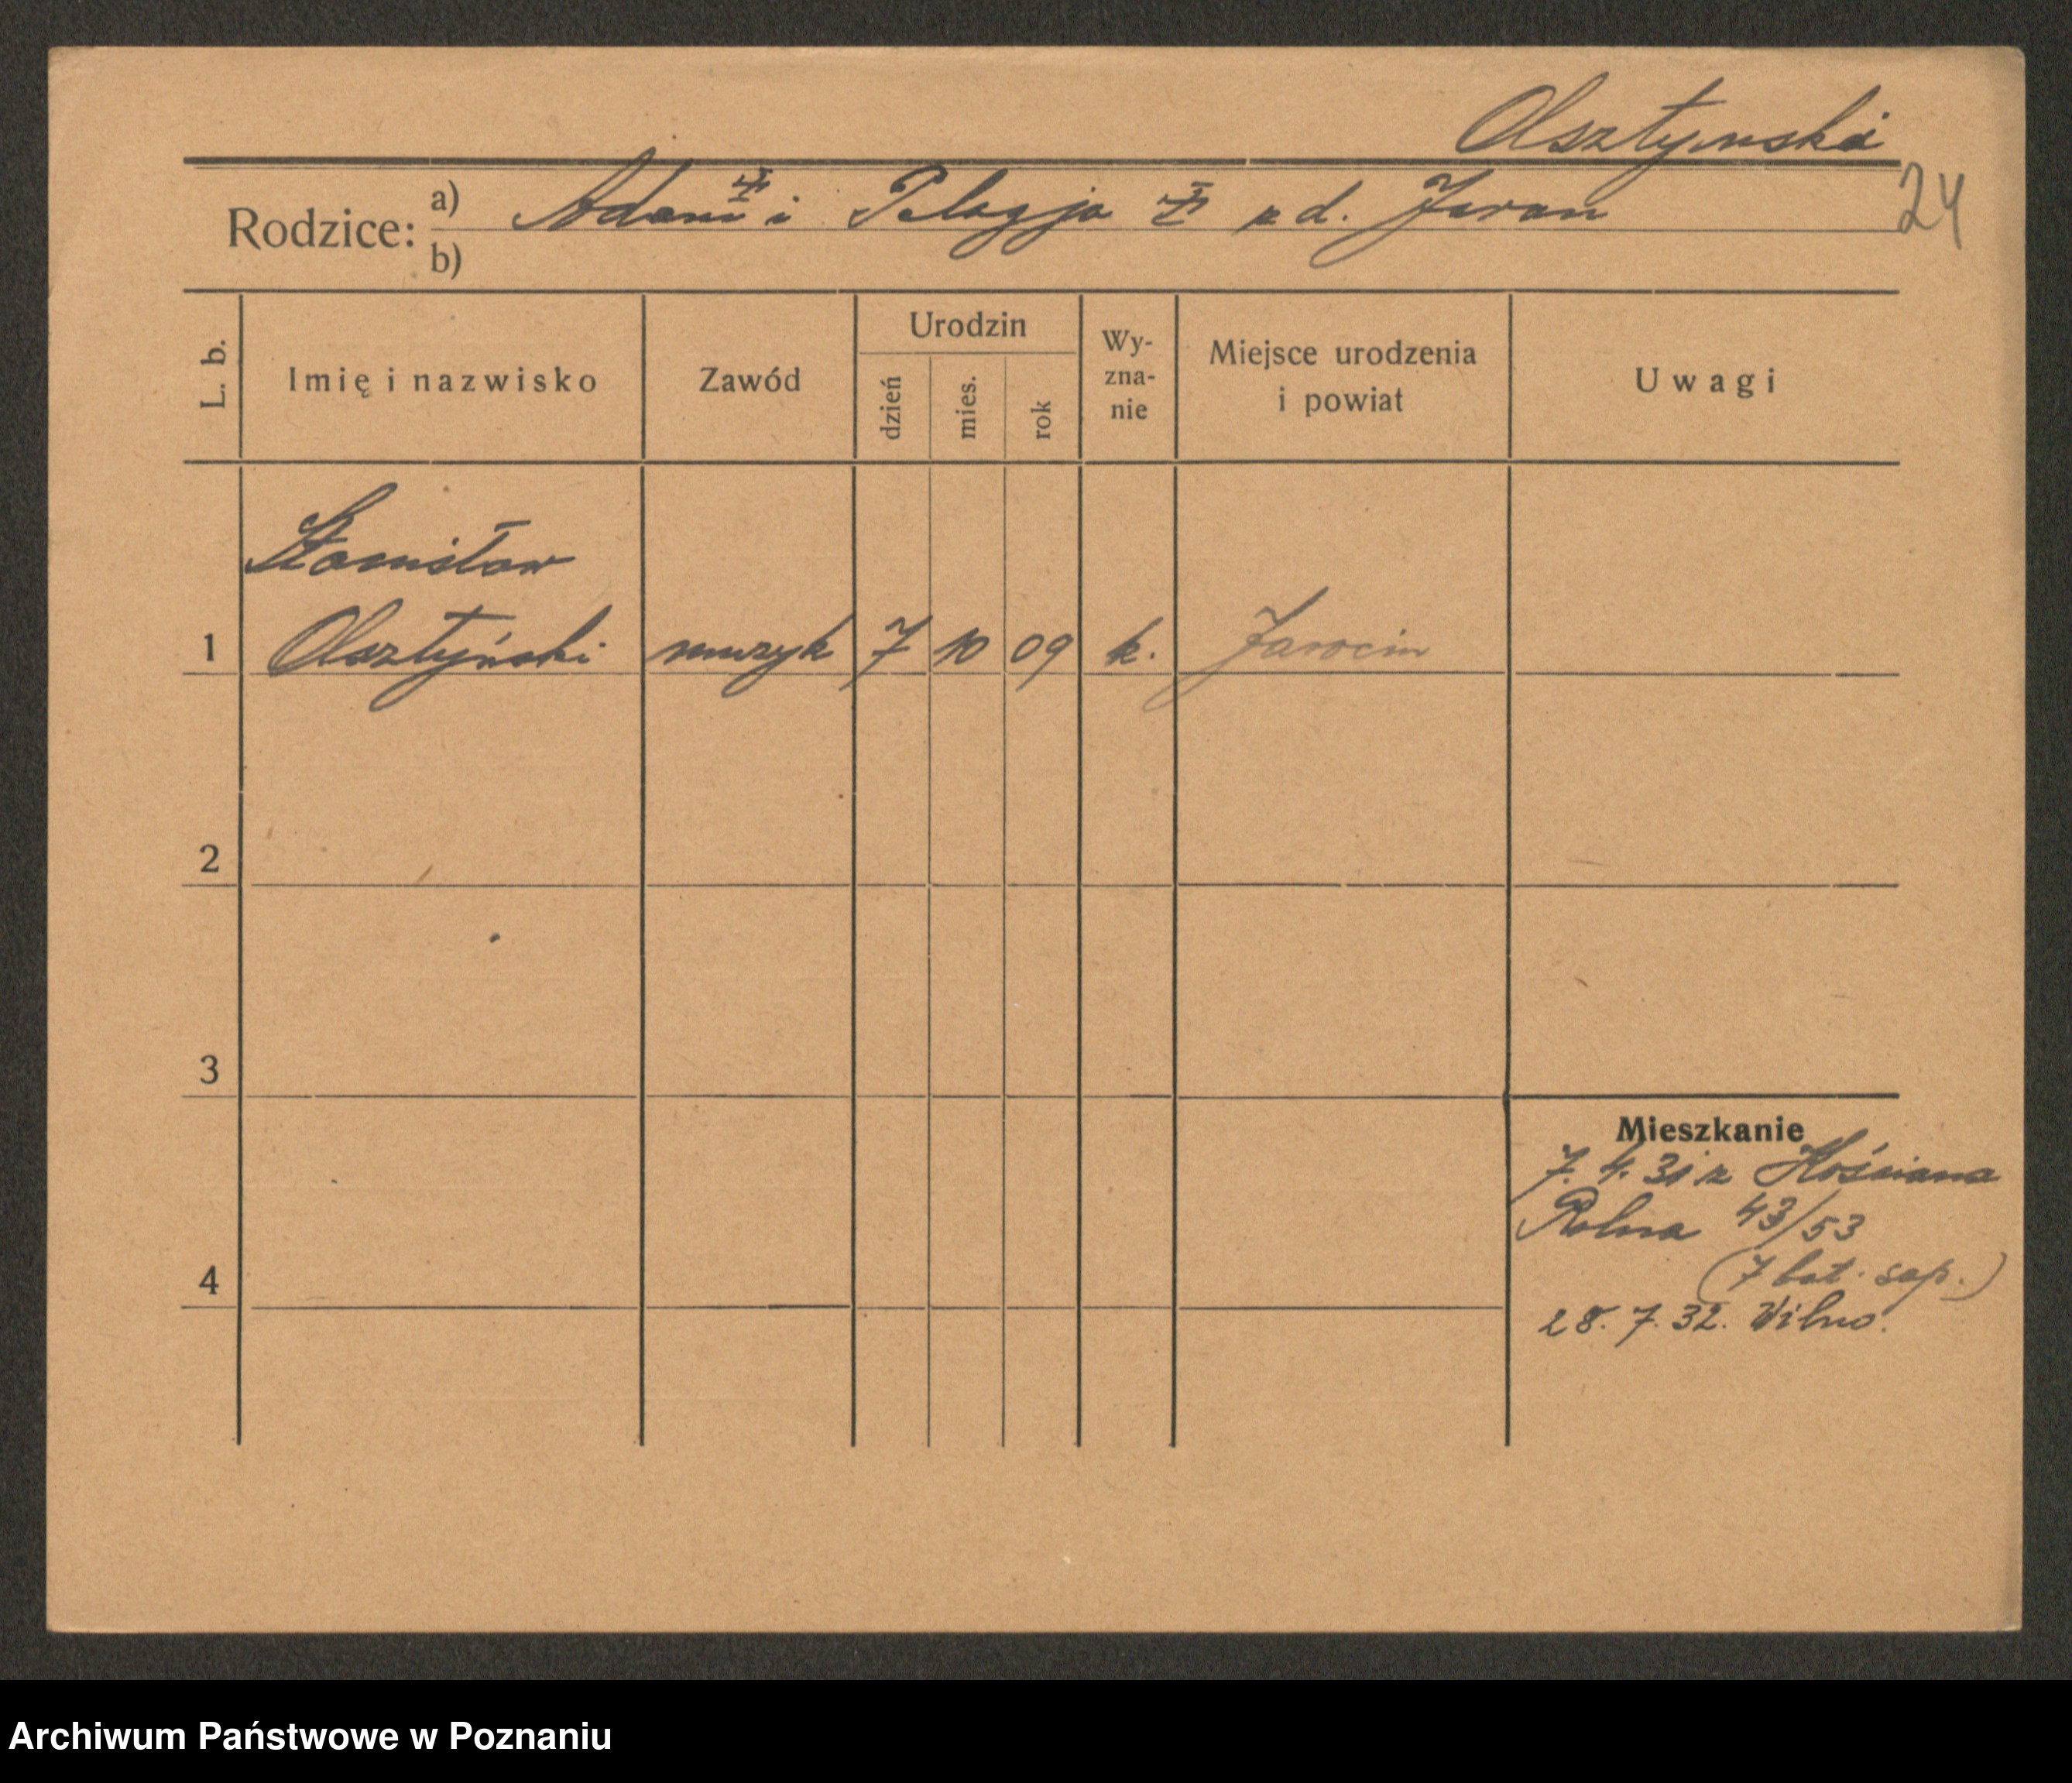 Olsztyński
Rodzice: a) Adam i Pelagja z d. Jaran
b)
24
L. b.
Imię i nazwisko
Zawód
Urodzin
dzień
mies.
rok
Wy-
zna-
nie
Miejsce urodzenia
i powiat
Uwagi
Stanisław
1 Olsztyński muzyk 7 10 09 k. Jarocin
2
3
4
Mieszkanie
7. 4. 31 z Kościana
Rolna 43/53
(7 bat. sap.)
28. 7. 32. Wilno.
Archiwum Państwowe w Poznaniu